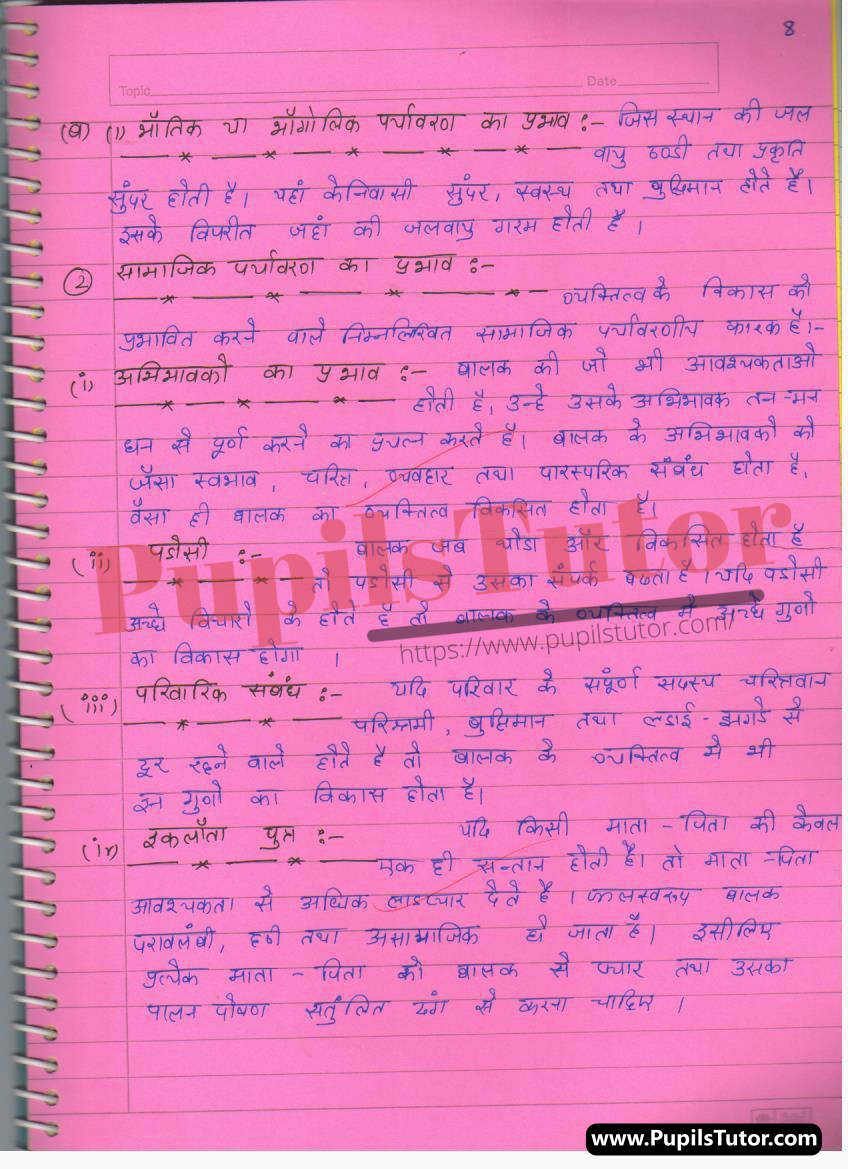 8
Topic Date
(ब) (1) भौतिक या भौगोलिक पर्यावरण का प्रभाव :- जिस स्थान की जल
वायु ठण्डी तथा प्रकृति
सुंदर होती है। यहां के निवासी सुंदर, स्वस्थ तथा बुद्धिमान होते है।
इसके विपरीत जहां की जलवायु गरम होती है ।
② सामाजिक पर्यावरण का प्रभाव :-
व्यक्तित्व के विकास को
प्रभावित करने वाले निम्नलिखित सामाजिक पर्यावरणीय कारक है।-
(i) अभिभावको का प्रभाव :- बालक की जो भी आवश्यकताओ
होती है, उन्हे उसके अभिभावक तन-मन
धन से पूर्ण करने का प्रयत्न करते है। बालक के अभिभावको को
जैसा स्वभाव, चरित्र, व्यवहार तथा पारस्परिक संबंध होता है,
वैसा ही बालक का व्यक्तित्व विकसित होता है।
(ii) पडोसी :- बालक जब थोडा और विकसित होता है
तो पडोसी से उसका संपर्क बढता है । यदि पडोसी
अच्छे विचारो के होते है तो बालक के व्यक्तित्व मे अच्छे गुणो
का विकास होगा ।
PupilsTutor
https://www.pupilstutor.com/
(iii) परिवारिक संबंध :- यदि परिवार के संपूर्ण सदस्य चरित्रवान
परिश्रमी, बुद्धिमान तथा लडाई-झगडे से
दूर रहने वाले होते है तो बालक के व्यक्तित्व मे भी
इन गुणो का विकास होता है।
(iv) इकलौता पुत्र :- यदि किसी माता-पिता की केवल
एक ही सन्तान होती है। तो माता-पिता
आवश्यकता से अधिक लाडप्यार देते है । फलस्वरुप बालक
परावलंबी, हठी तथा असामाजिक हो जाता है। इसीलिए
प्रत्येक माता-पिता को बालक से प्यार तथा उसका
पालन पोषण संतुलित ढंग से करना चाहिए ।
www.PupilsTutor.com